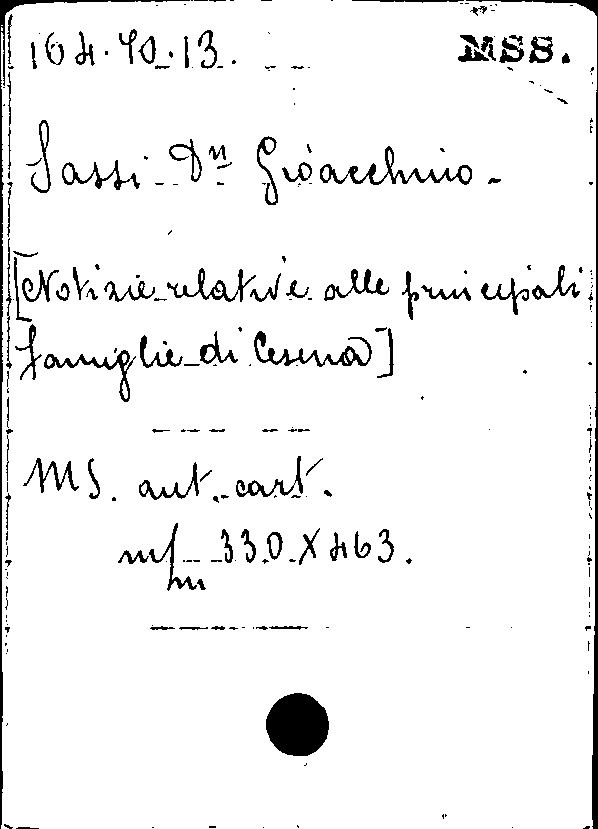 164.70.13. MSS.
Sassi Dn Gioacchino.
[Notizie relative alle principali
famiglie di Cesena]
MS. aut. cart.
m/m 330 X 463.